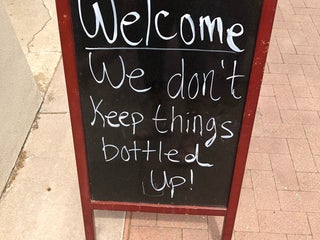 Welcome
We don't
Keep things
bottled
Up!